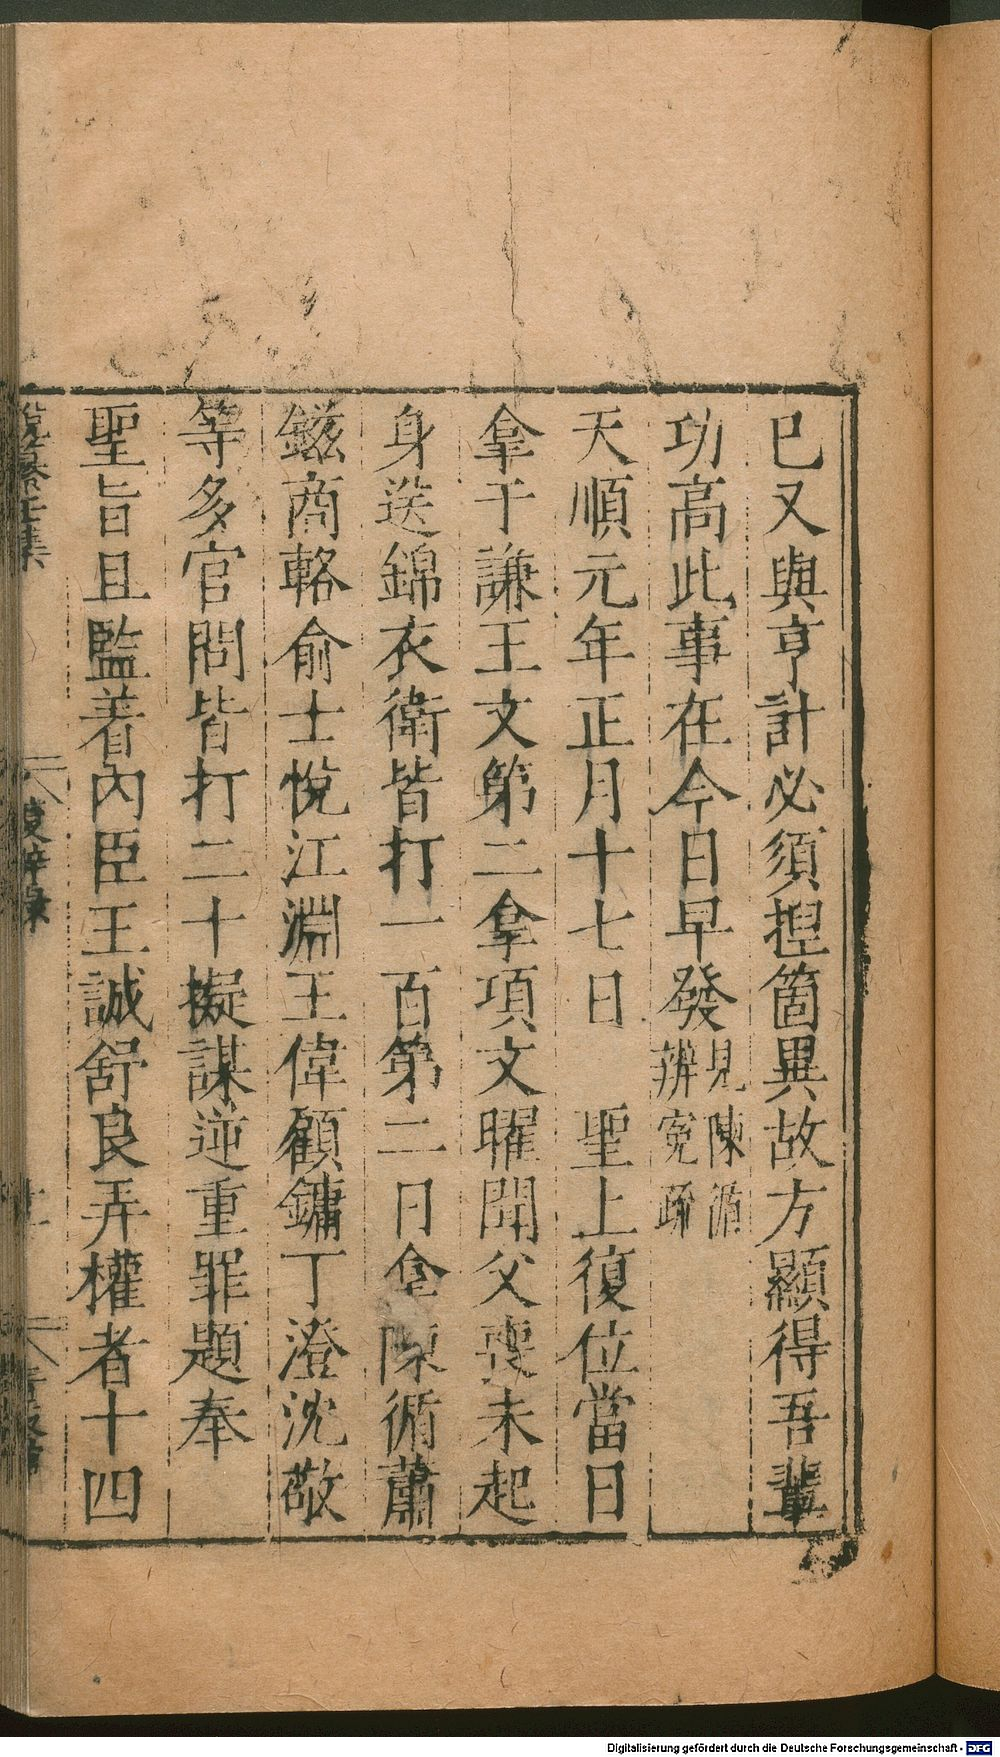 已又與亨計必須揑箇異故方顯得吾輩
功高此事在今日早發見陳循辨寃疏
天順元年正月十七日　聖上復位當日
拿于謙王文第二拿項文曜聞父喪未起
身送錦衣衛皆打一百第二日拿陳循蕭
鎡商輅俞士悅江淵王偉顧鏞丁澄沈敬
等多官問皆打二十擬謀逆重罪題奉
聖旨且監着內臣王誠舒良弄權者十四
復辟錄
Digitalisierung gefördert durch die Deutsche Forschungsgemeinschaft - DFG